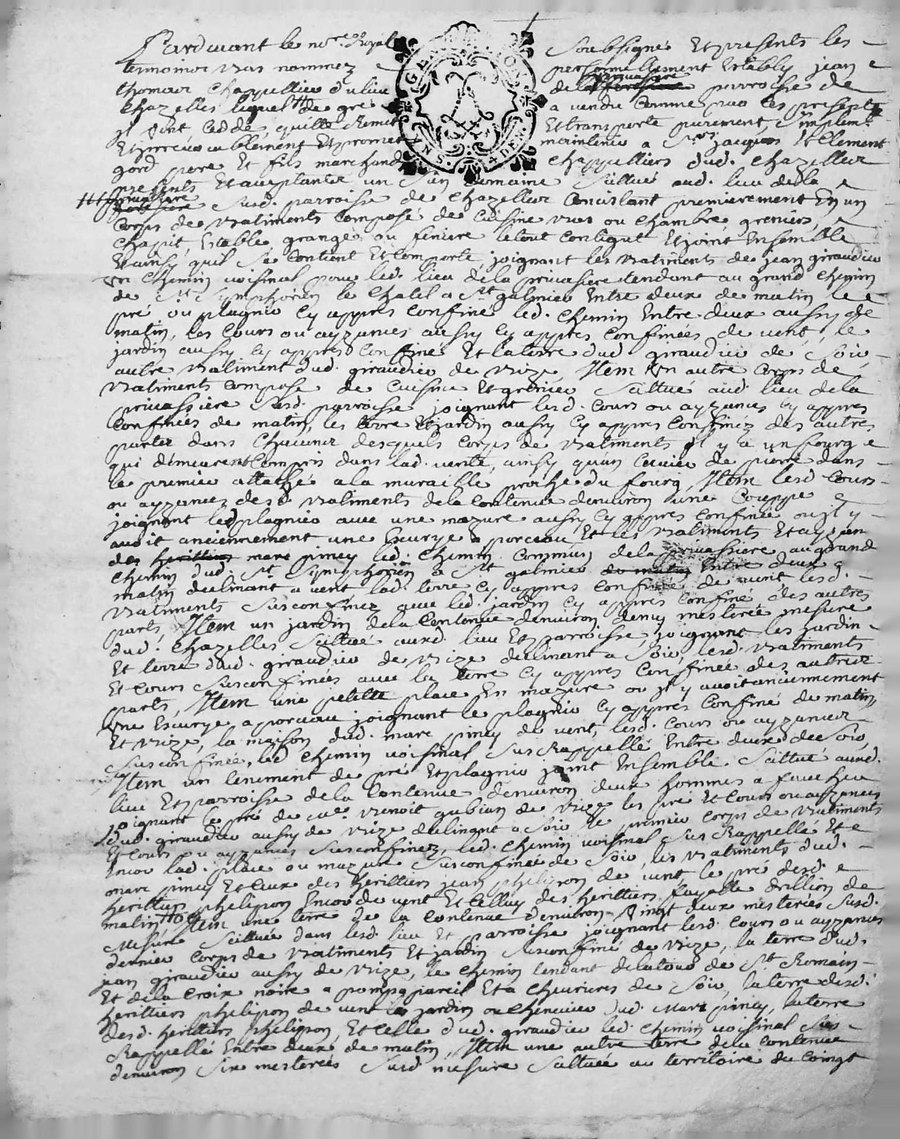 Pardevant le no.re Royal soubsigné Et présents les
temoins bas nommez personnellement Estably jean
thomas chappellier du lieu de la privassiere parroisse de
chazelles lequel de gré a vendu comme par ces presentes
il vend cedde, quitte Remet Et transporte purement, simplem.t
Et irrevocablement Et promet maintenir a S.rs jacques Vellement
pere Et fils marchand Chappelliers dud. Chazelles
presents Et acceptants un sien domaine situé aud. lieu de la
privassiere susd. parroisse de chazelles Consistant premierement En un
Corps de batiments composé de Cuisine bas ou chambre, greniers,
chapit Estable, grange, ou feniere le tout contigut Et joint Ensemble
Et ainsy quil se contient Et comporte, joignant les batiments de jean giraudier
un chemin voisinal pour led. lieu de la privassiere tendant au grand chemin
de S.t Symphorien le chatel a S.t galmier Entre deux de matin le
pré ou plagnier cy appres confiné led. chemin Entre deux aussy de
matin, les Cours ou ayzances aussy cy appres confinées de vent, le
jardin aussy cy appres confiné Et la terre dud. giraudier de soir
autre batiment dud. giraudier de bize, Item Un autre Corps de
batiments composé de Cuisine Et grenier situé aud. lieu de la
privassiere susd. parroisse joignant lesd. Cours ou ayzances cy appres
Confinées de matin, les terre Et jardin aussy cy appres confinez des autres
parts dans chacuns desquels corps de batiments Il y a un fourg
qui demeurent compris dans lad. vente, ainsy qu'un cuvier de pierre dans
le premier attaché a la muraille proche du fourg, Item lesd. Cours
ou ayzances desd. batiments de la Contenue denviron une Couppe
joignant led. plagnier avec une mazure aussy cy appres confinée ou il y
avoit anciennement une Ecurye a porceau Et les batiments Et ayzances
des heritiers marc piney led. chemin commun de la privassiere au grand
chemin dud. S.t Symphorien a S.t galmier du matin Entre deux
matin declinant a vent lad. terre cy appres confinée de vent lesd.
batiments susconfinez avec led. jardin cy appres confiné des autres
parts, Item un jardin de la Contenue denviron demy mesterée mesure
dud. Chazelles situé auxd. lieu Et parroisse, joignant les jardin
Et terre dud. giraudier de bize declinant a soir, lesd. batiments
Et Cours susconfinées avec la terre cy appres confinée des autres
parts, Item une petitte place En mazure ou il y avoit anciennement
Une Escurye a porceau joignant le plagnier cy appres confiné de matin,
Et bize, la maison dud. marc piney de vent, lesd. Cours ou ayzances
susconfinée, led. chemin voisinal susRappellé Entre deux de soir,
Item un tenement de pré Et plagnier joint Ensemble situé auxd.
lieu Et parroisse de la Contenue denviron deux hommes a faucheur
joignant le pré de benoit gubian de bize les pré Et Cours ou ayzances
dud. giraudier aussy de bize declinant a soir le premier corps de batiments
Et Cours ou ayzances susconfinez, led. chemin voisinal susRappellé Et
Encor lad. place ou mazure susconfinée de soir, les batiments dud.
marc piney Et Ceux des heritiers jean phelipon de vent le pré desd.
heritiers phelipon Encor de vent Et celluy des heritiers fayolle drillion de
matin, Item une terre de la Contenue denviron vingt deux mesterées susd.
Mesure situé dans lesd. lieu Et parroisse joignant lesd. Cours ou ayzances
dernier corps de batiments Et jardin susconfiné de bize, la terre dud.
jean giraudier aussy de bize, le chemin tendant de S.t Romain
Et de la croix noire a pomps Et a chevrieres de soir, la terre desd.
heritiers phelipon de vent le jardin ou chenevier dud. Marc piney, la terre
desd. heritiers phelipon, Et celle dud. giraudier led. chemin voisinal sus
Rappellé Entre deux de matin, Item une autre terre de la contenue
denviron six mesterées susd. mesure située au territoire du Coingt